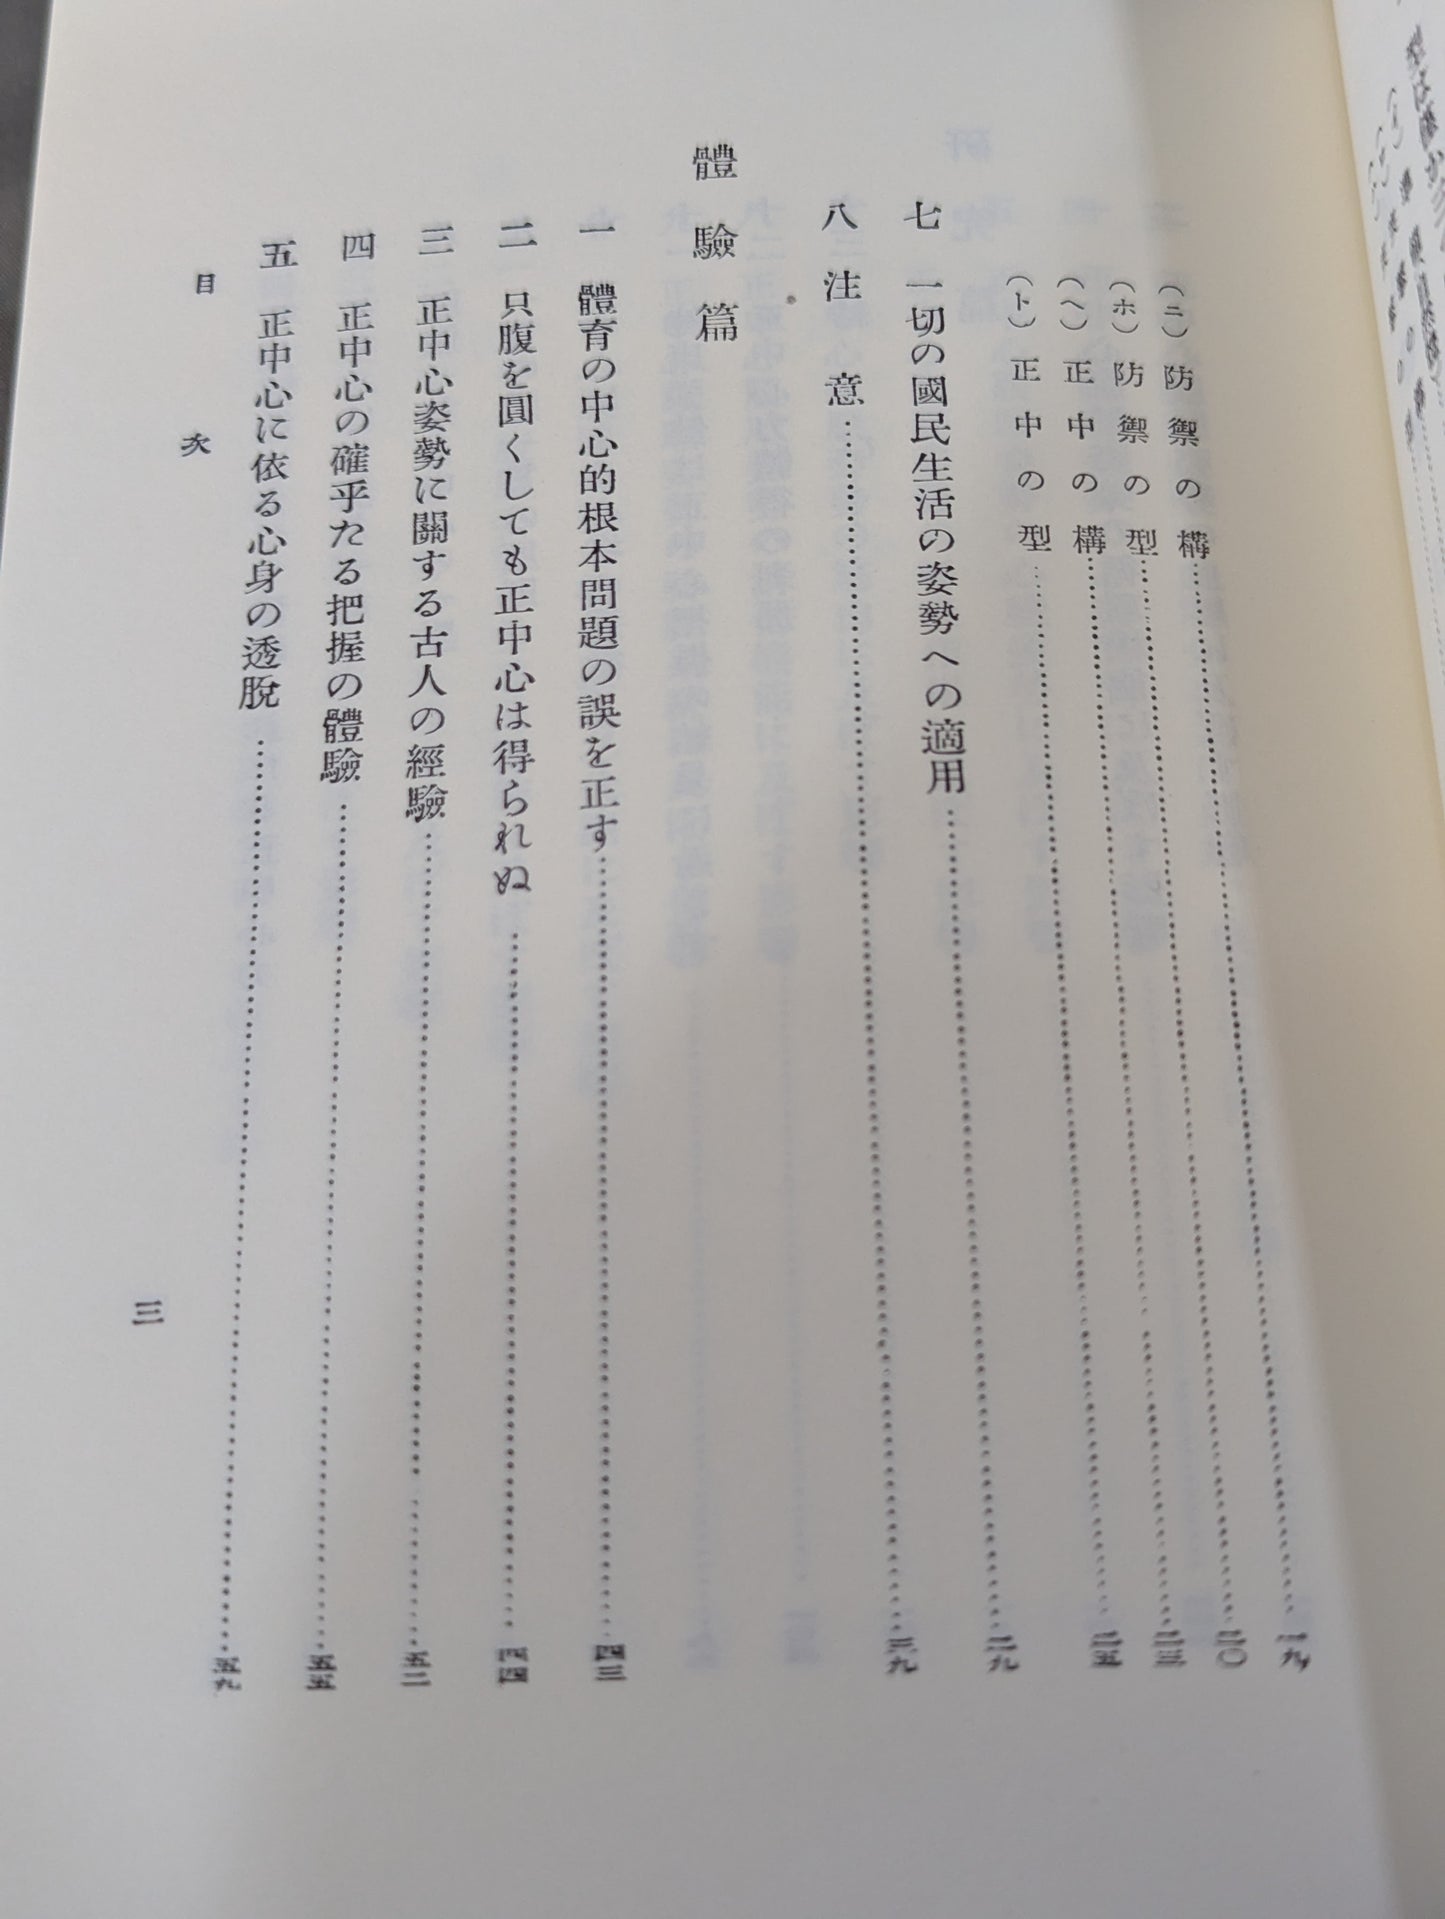 (ニ) 防禦の構……一九
(ホ) 防禦の型……二〇
(ヘ) 正中の構……二三
(ト) 正中の型……二五
七 一切の國民生活の姿勢への適用……二九
八 注意……三九
體驗篇
一 體育の中心的根本問題の誤を正す……四三
二 只腹を圓くしても正中心は得られぬ……四四
三 正中心姿勢に關する古人の經驗……五二
四 正中心の確乎たる把握の體驗……五五
五 正中心に依る心身の透脫……五九
目次
三